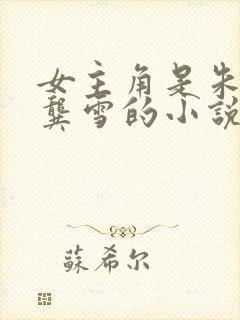 女主角是朱
龔雪的小說
蘇希尔